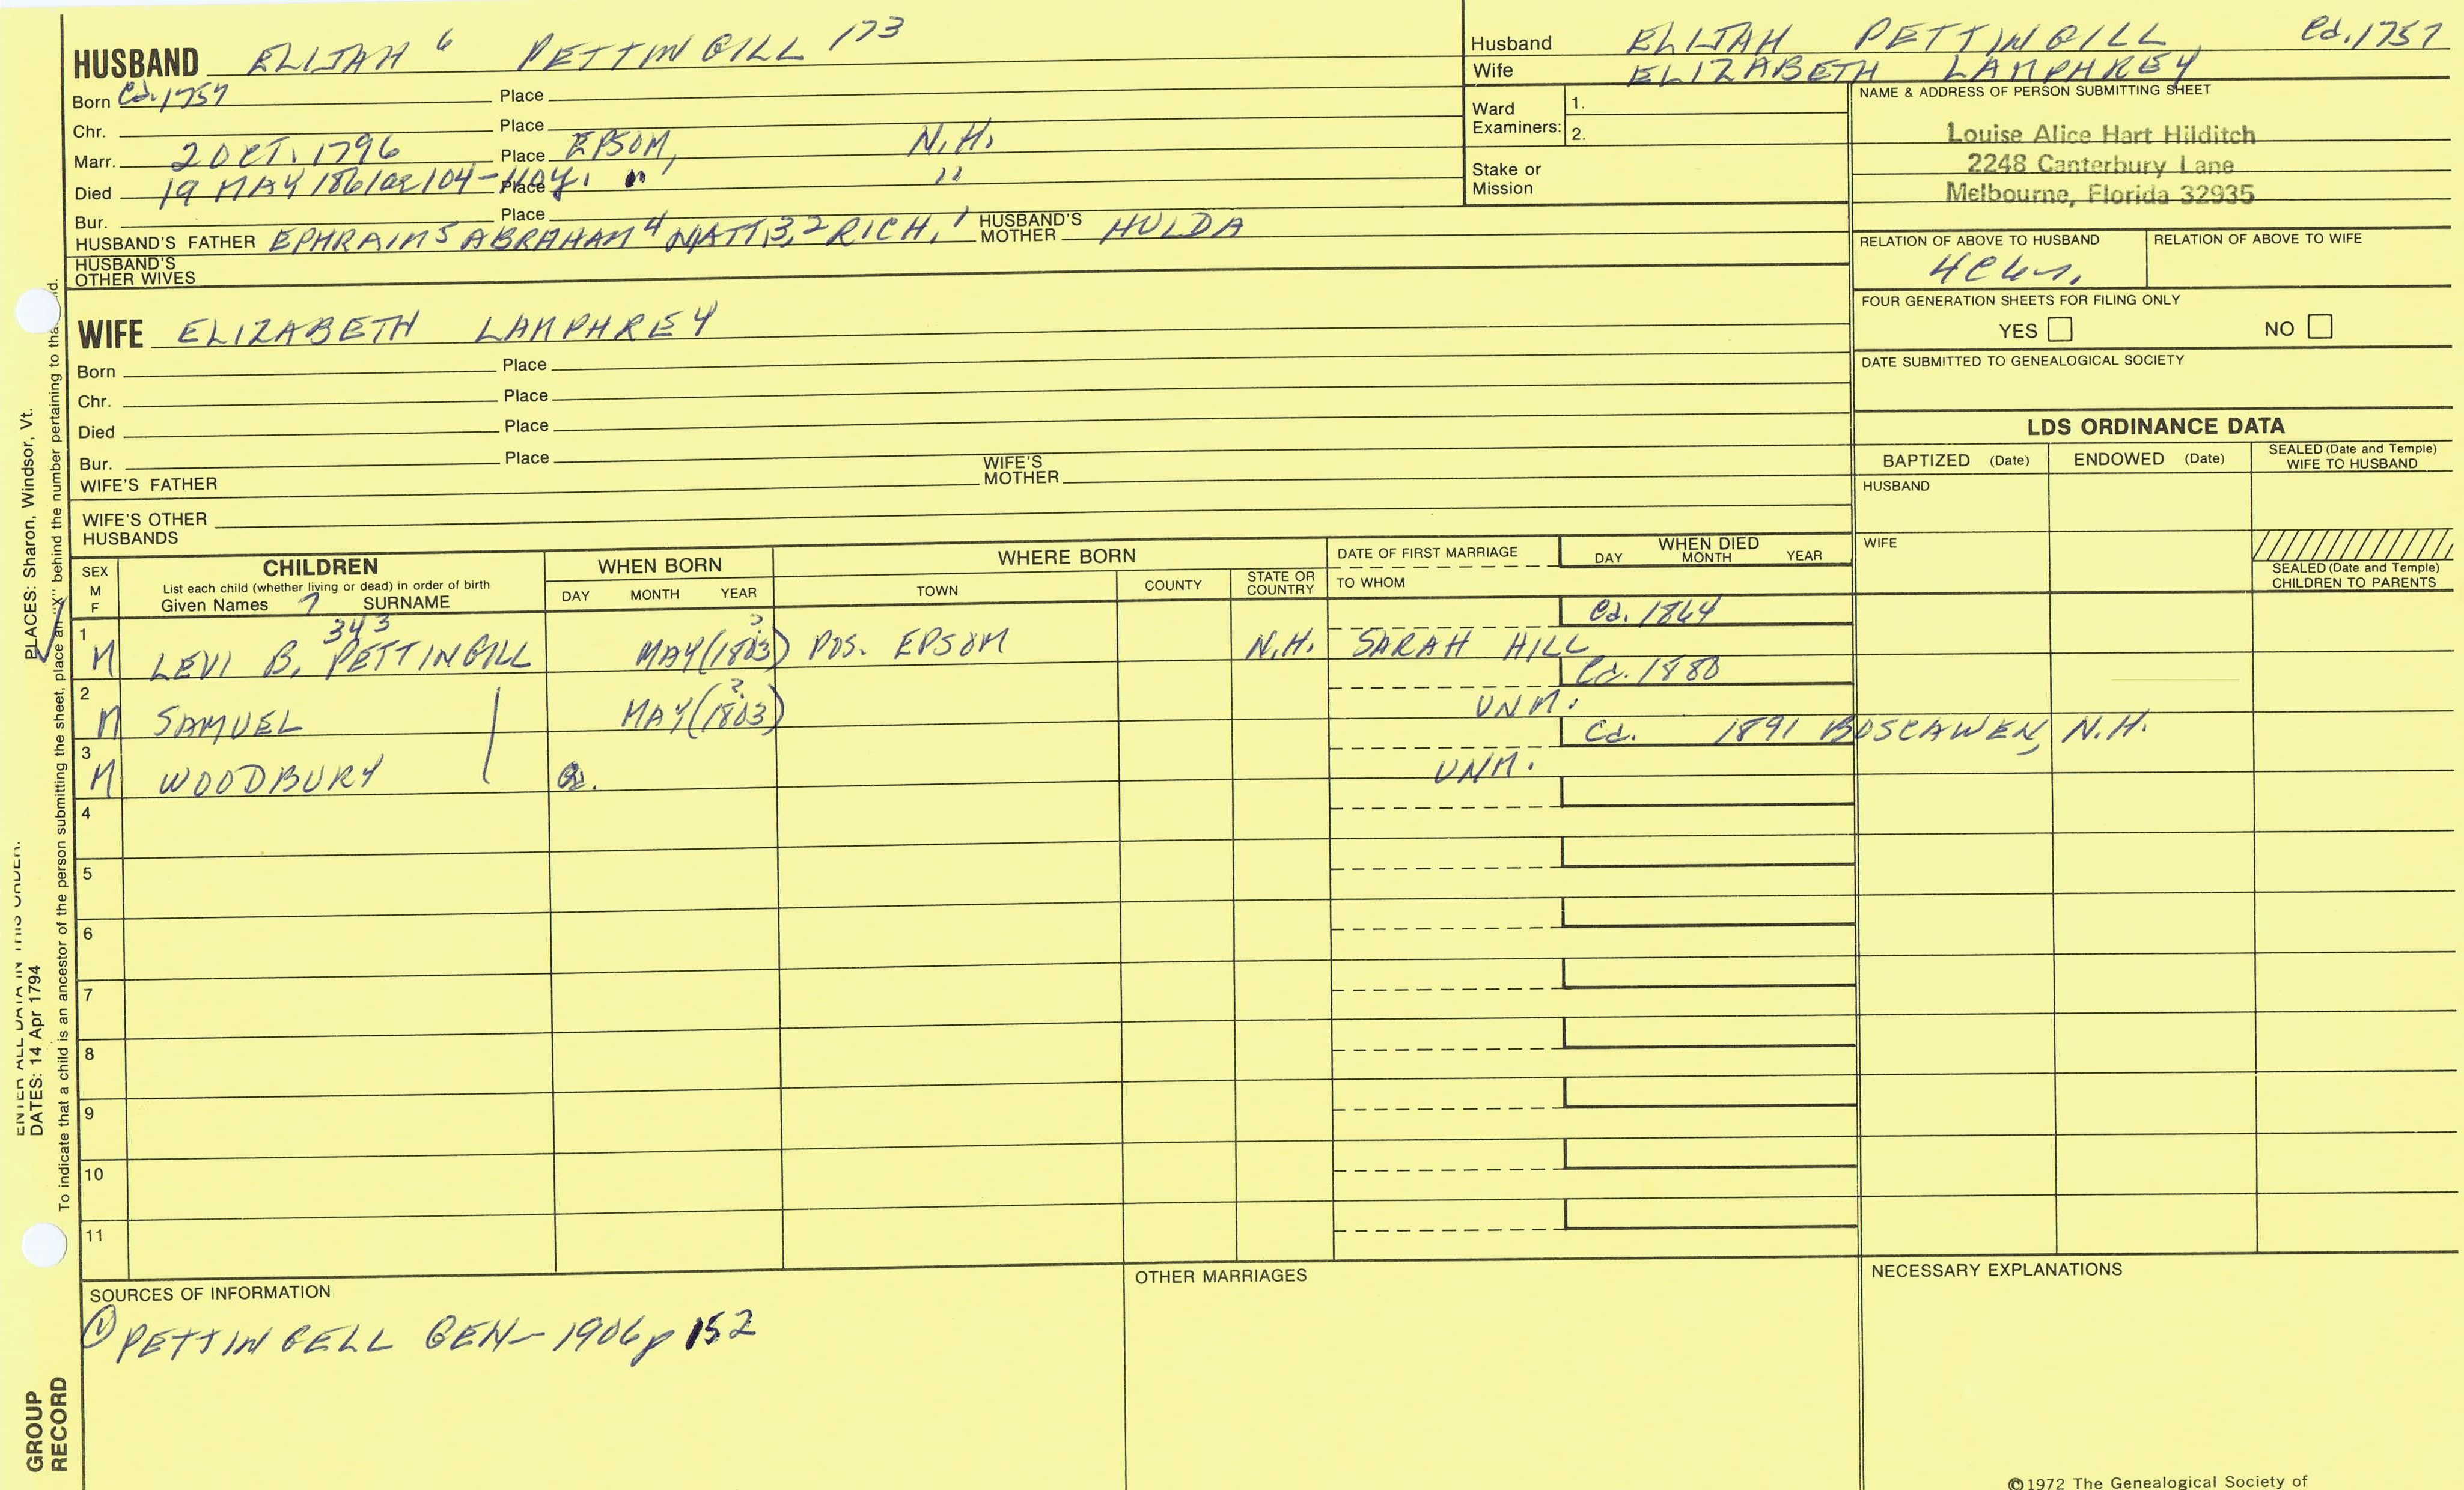 HUSBAND ELIJAH 6 PETTINGILL 173
Husband ELIJAH PETTINGILL, Ca. 1757
Wife ELIZABETH LAMPHREY
Born Ca. 1757 Place
Chr. Place
Marr. 2 OCT. 1796 Place EPSOM, N.H.
Died 19 MAY 1861 ae 104-10y. Place " "
Bur. Place
HUSBAND'S FATHER EPHRAIM 5 ABRAHAM 4 MATT. 3, 2 RICH. 1 HUSBAND'S MOTHER HULDA
HUSBAND'S OTHER WIVES
Ward Examiners: 1.
2.
Stake or Mission
NAME & ADDRESS OF PERSON SUBMITTING SHEET
Louise Alice Hart Hilditch
2248 Canterbury Lane
Melbourne, Florida 32935
RELATION OF ABOVE TO HUSBAND RELATION OF ABOVE TO WIFE
FOUR GENERATION SHEETS FOR FILING ONLY
YES NO
DATE SUBMITTED TO GENEALOGICAL SOCIETY
WIFE ELIZABETH LAMPHREY
Born Place
Chr. Place
Died Place
Bur. Place
WIFE'S FATHER WIFE'S MOTHER
WIFE'S OTHER HUSBANDS
LDS ORDINANCE DATA
BAPTIZED (Date) ENDOWED (Date) SEALED (Date and Temple) WIFE TO HUSBAND
HUSBAND
WIFE
SEALED (Date and Temple) CHILDREN TO PARENTS
SEX M F
CHILDREN
List each child (whether living or dead) in order of birth
Given Names 7 SURNAME
WHEN BORN
DAY MONTH YEAR
WHERE BORN
TOWN COUNTY STATE OR COUNTRY
DATE OF FIRST MARRIAGE
TO WHOM
WHEN DIED
DAY MONTH YEAR
1 M LEVI B. PETTINGILL 343 MAY (1803) ? POS. EPSOM N.H. SARAH HILL Ca. 1864
2 M SAMUEL MAY (1803) ? UNM. Ca. 1880
3 M WOODBURY UNM. Ca. 1891 BOSCAWEN, N.H.
4
5
6
7
8
9
10
11
SOURCES OF INFORMATION
① PETTINGELL GEN- 1906 p 152
OTHER MARRIAGES
NECESSARY EXPLANATIONS
©1972 The Genealogical Society of
PLACES: Sharon, Windsor, Vt.
ENTER ALL DATA IN THIS ORDER:
DATES: 14 Apr 1794
To indicate that a child is an ancestor of the person submitting the sheet, place an "X" behind the number pertaining to that
GROUP
RECORD